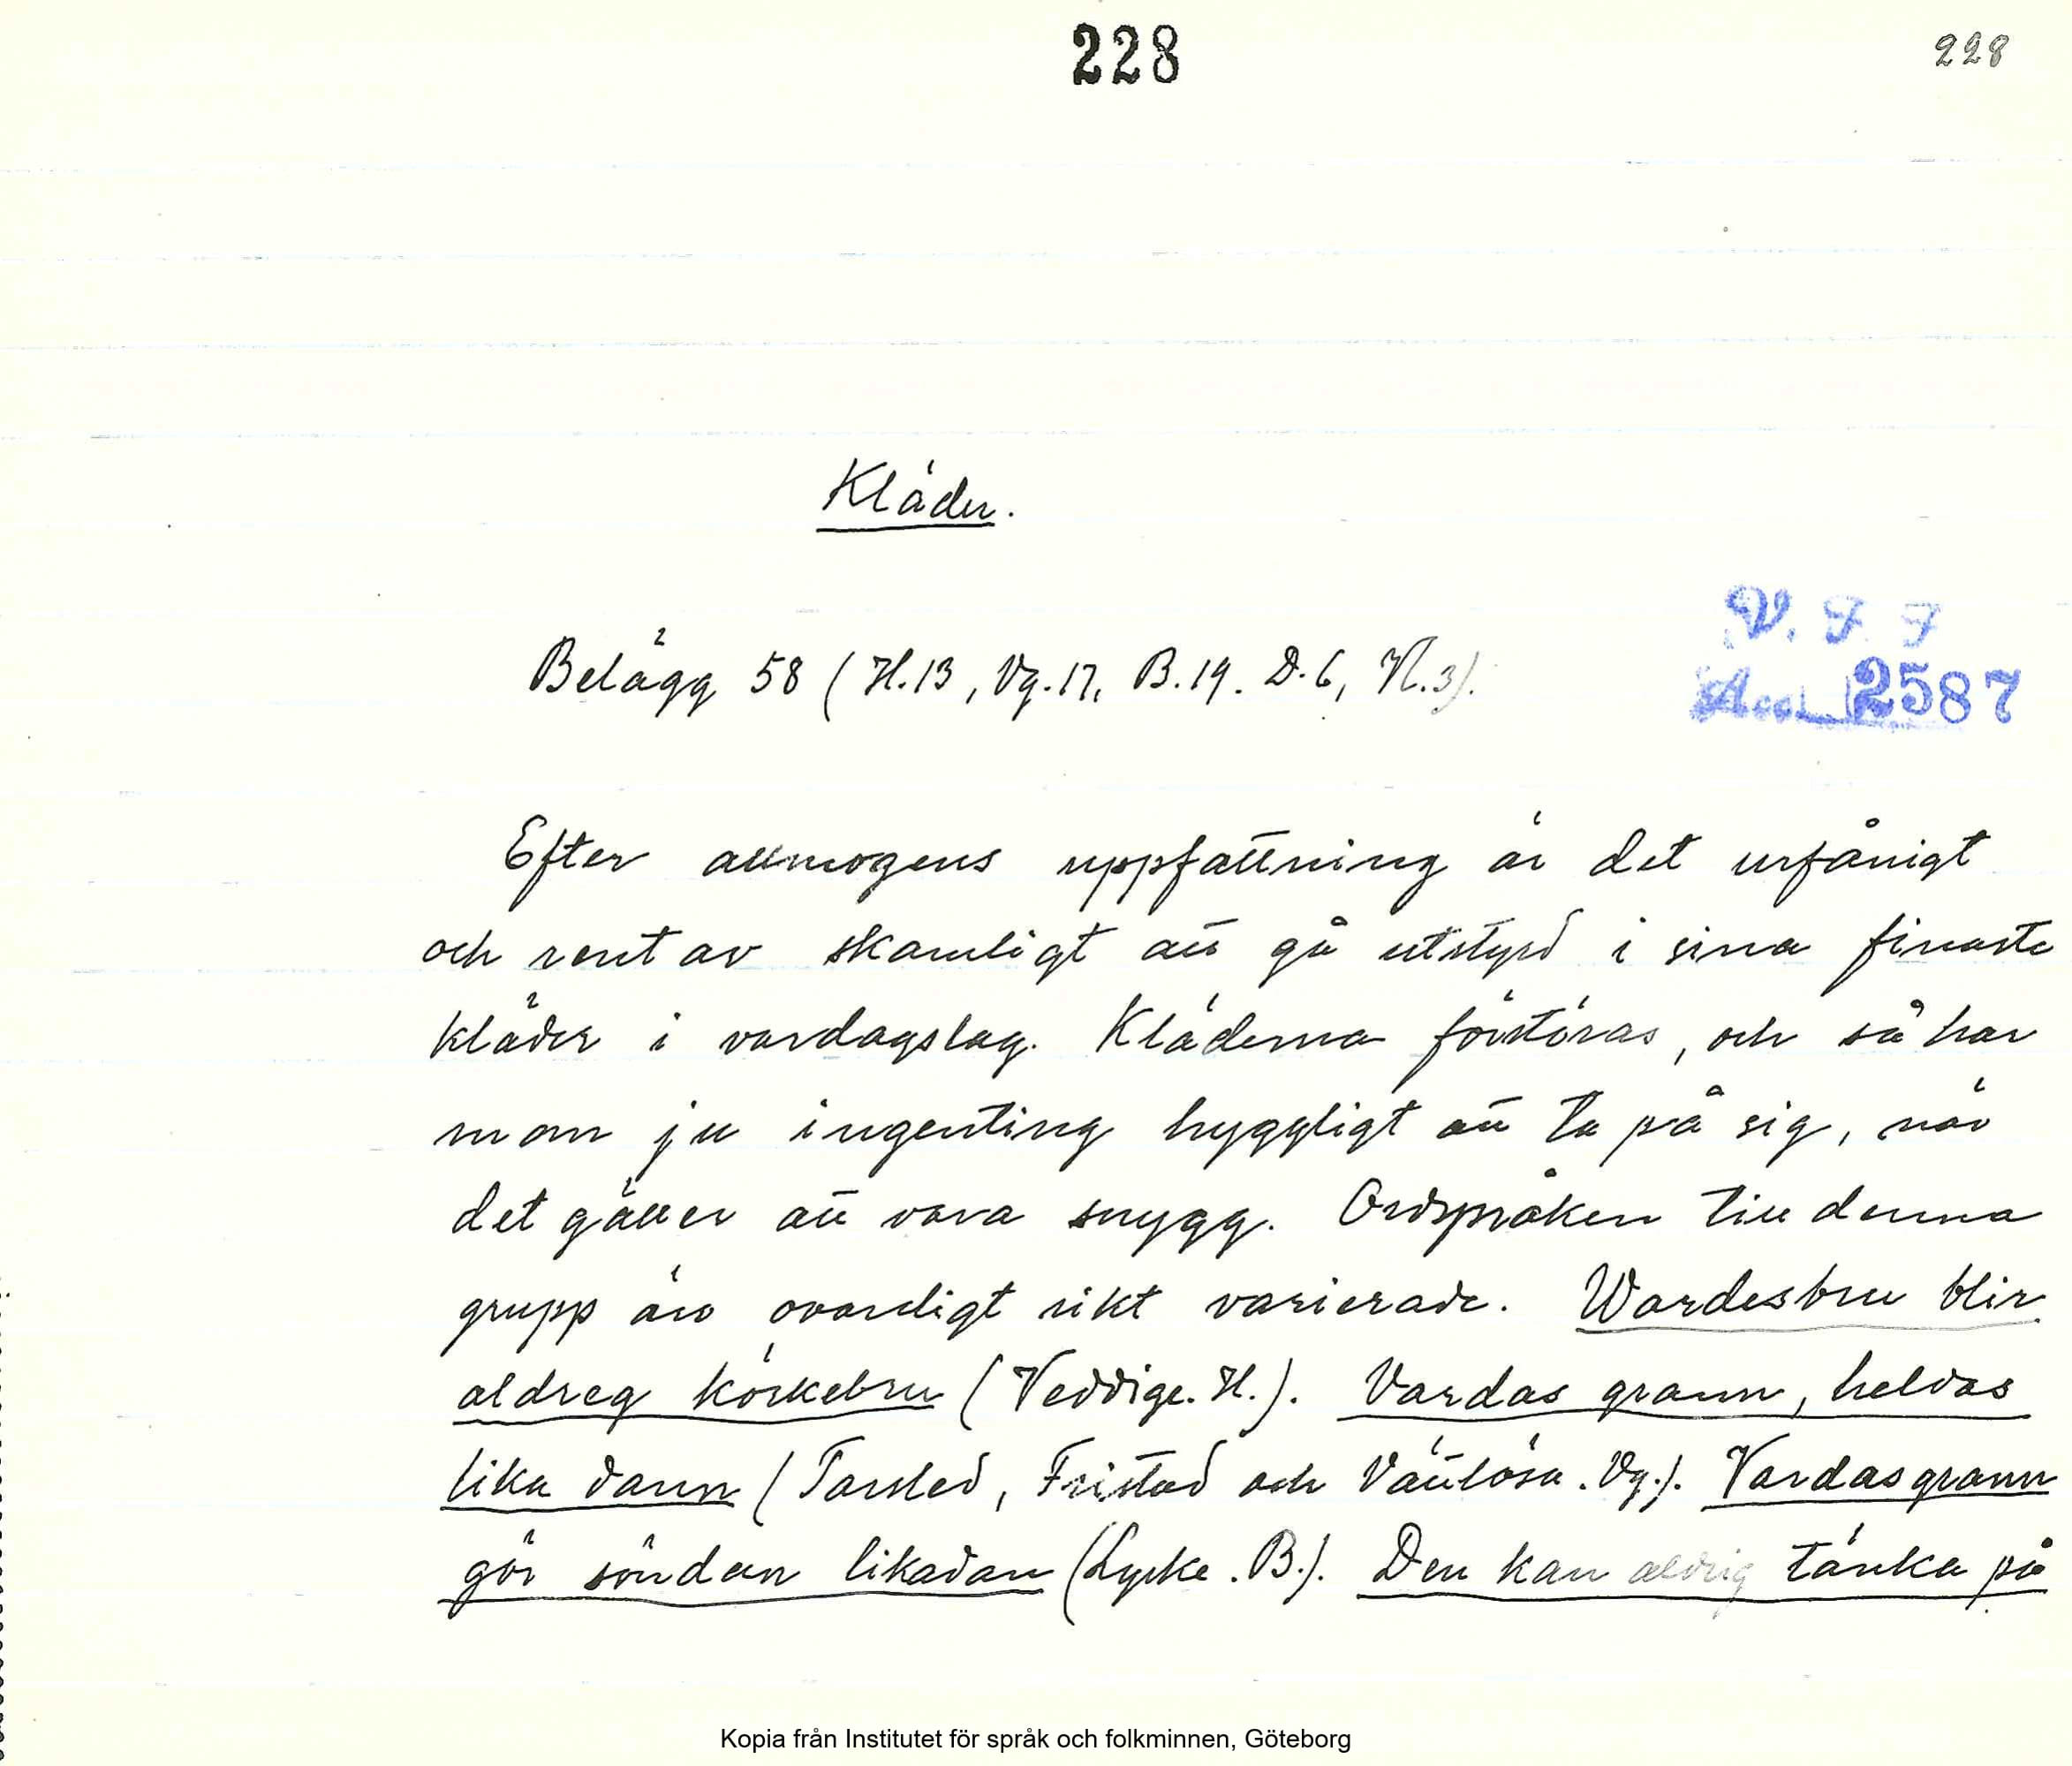 228
228
Kläder.
V. F F
Acc. 2587
Belägg 58 (H.13, Vg.17, B.19. D.6, N.3).
Efter allmogens uppfattning är det urfånigt
och rent av skamligt att gå utstyrd i sina finaste
kläder i vardagslag. Kläderna förstöras, och så har
man ju ingenting hyggligt att ta på sig, när
det gäller att vara snygg. Ordspråken till denna
grupp äro ovanligt rikt varierade. Wardesbru blir
aldreg körkebru (Veddige. H.). Vardas grann, heldas
lika dann (Tarsled, Fristad och Vättlösa. Vg.). Vardas grann
gör söndan likadan (Lycke. B.). Den kan aldrig tänka på
Kopia från Institutet för språk och folkminnen, Göteborg